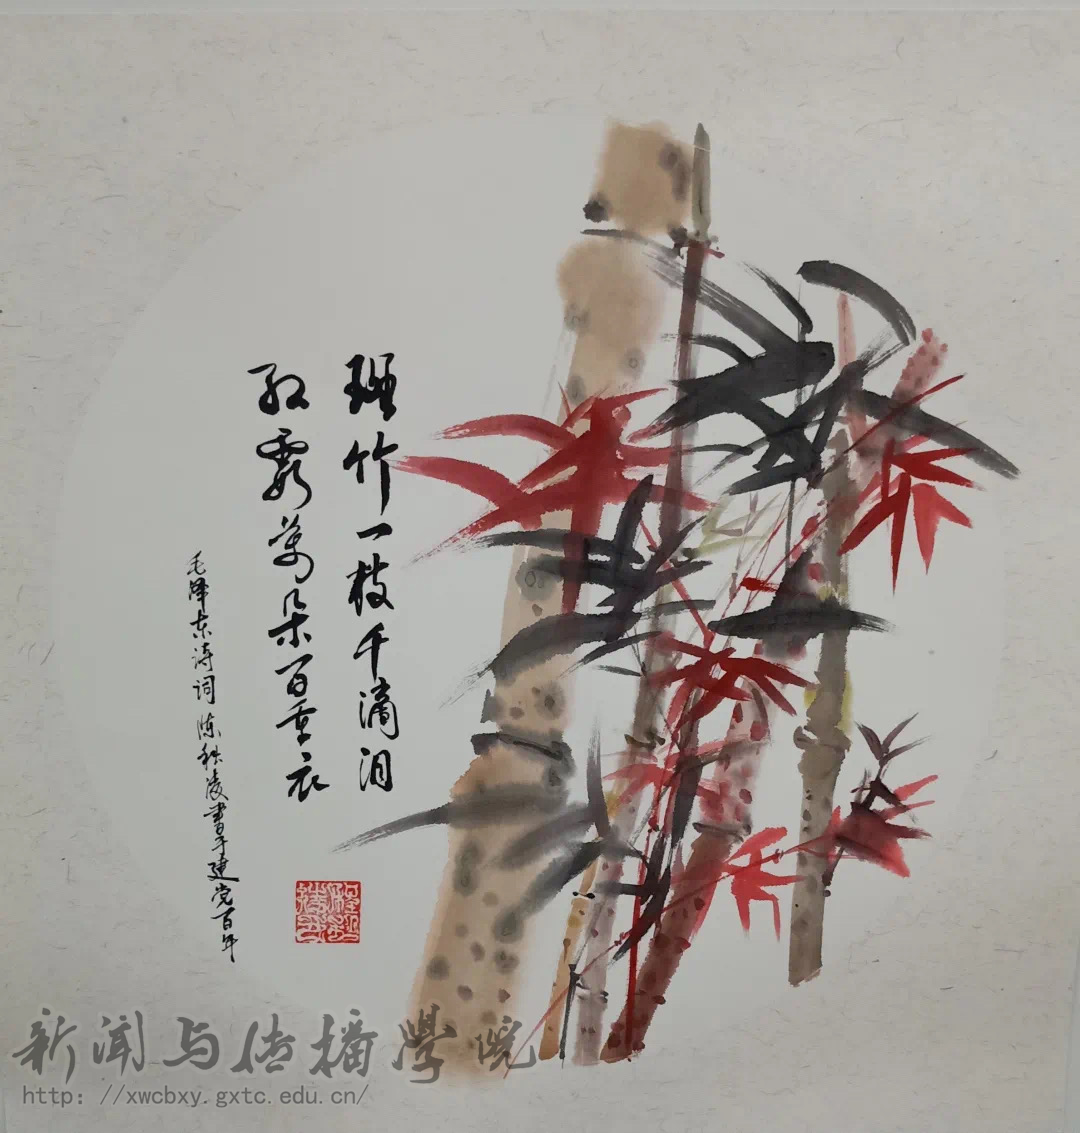 斑竹一枝千滴泪
红霞萬朵百重衣
毛泽东诗词 陈 書于建党百年
新闻与传播學院
http: //xwcbxy.gxtc.edu.cn/